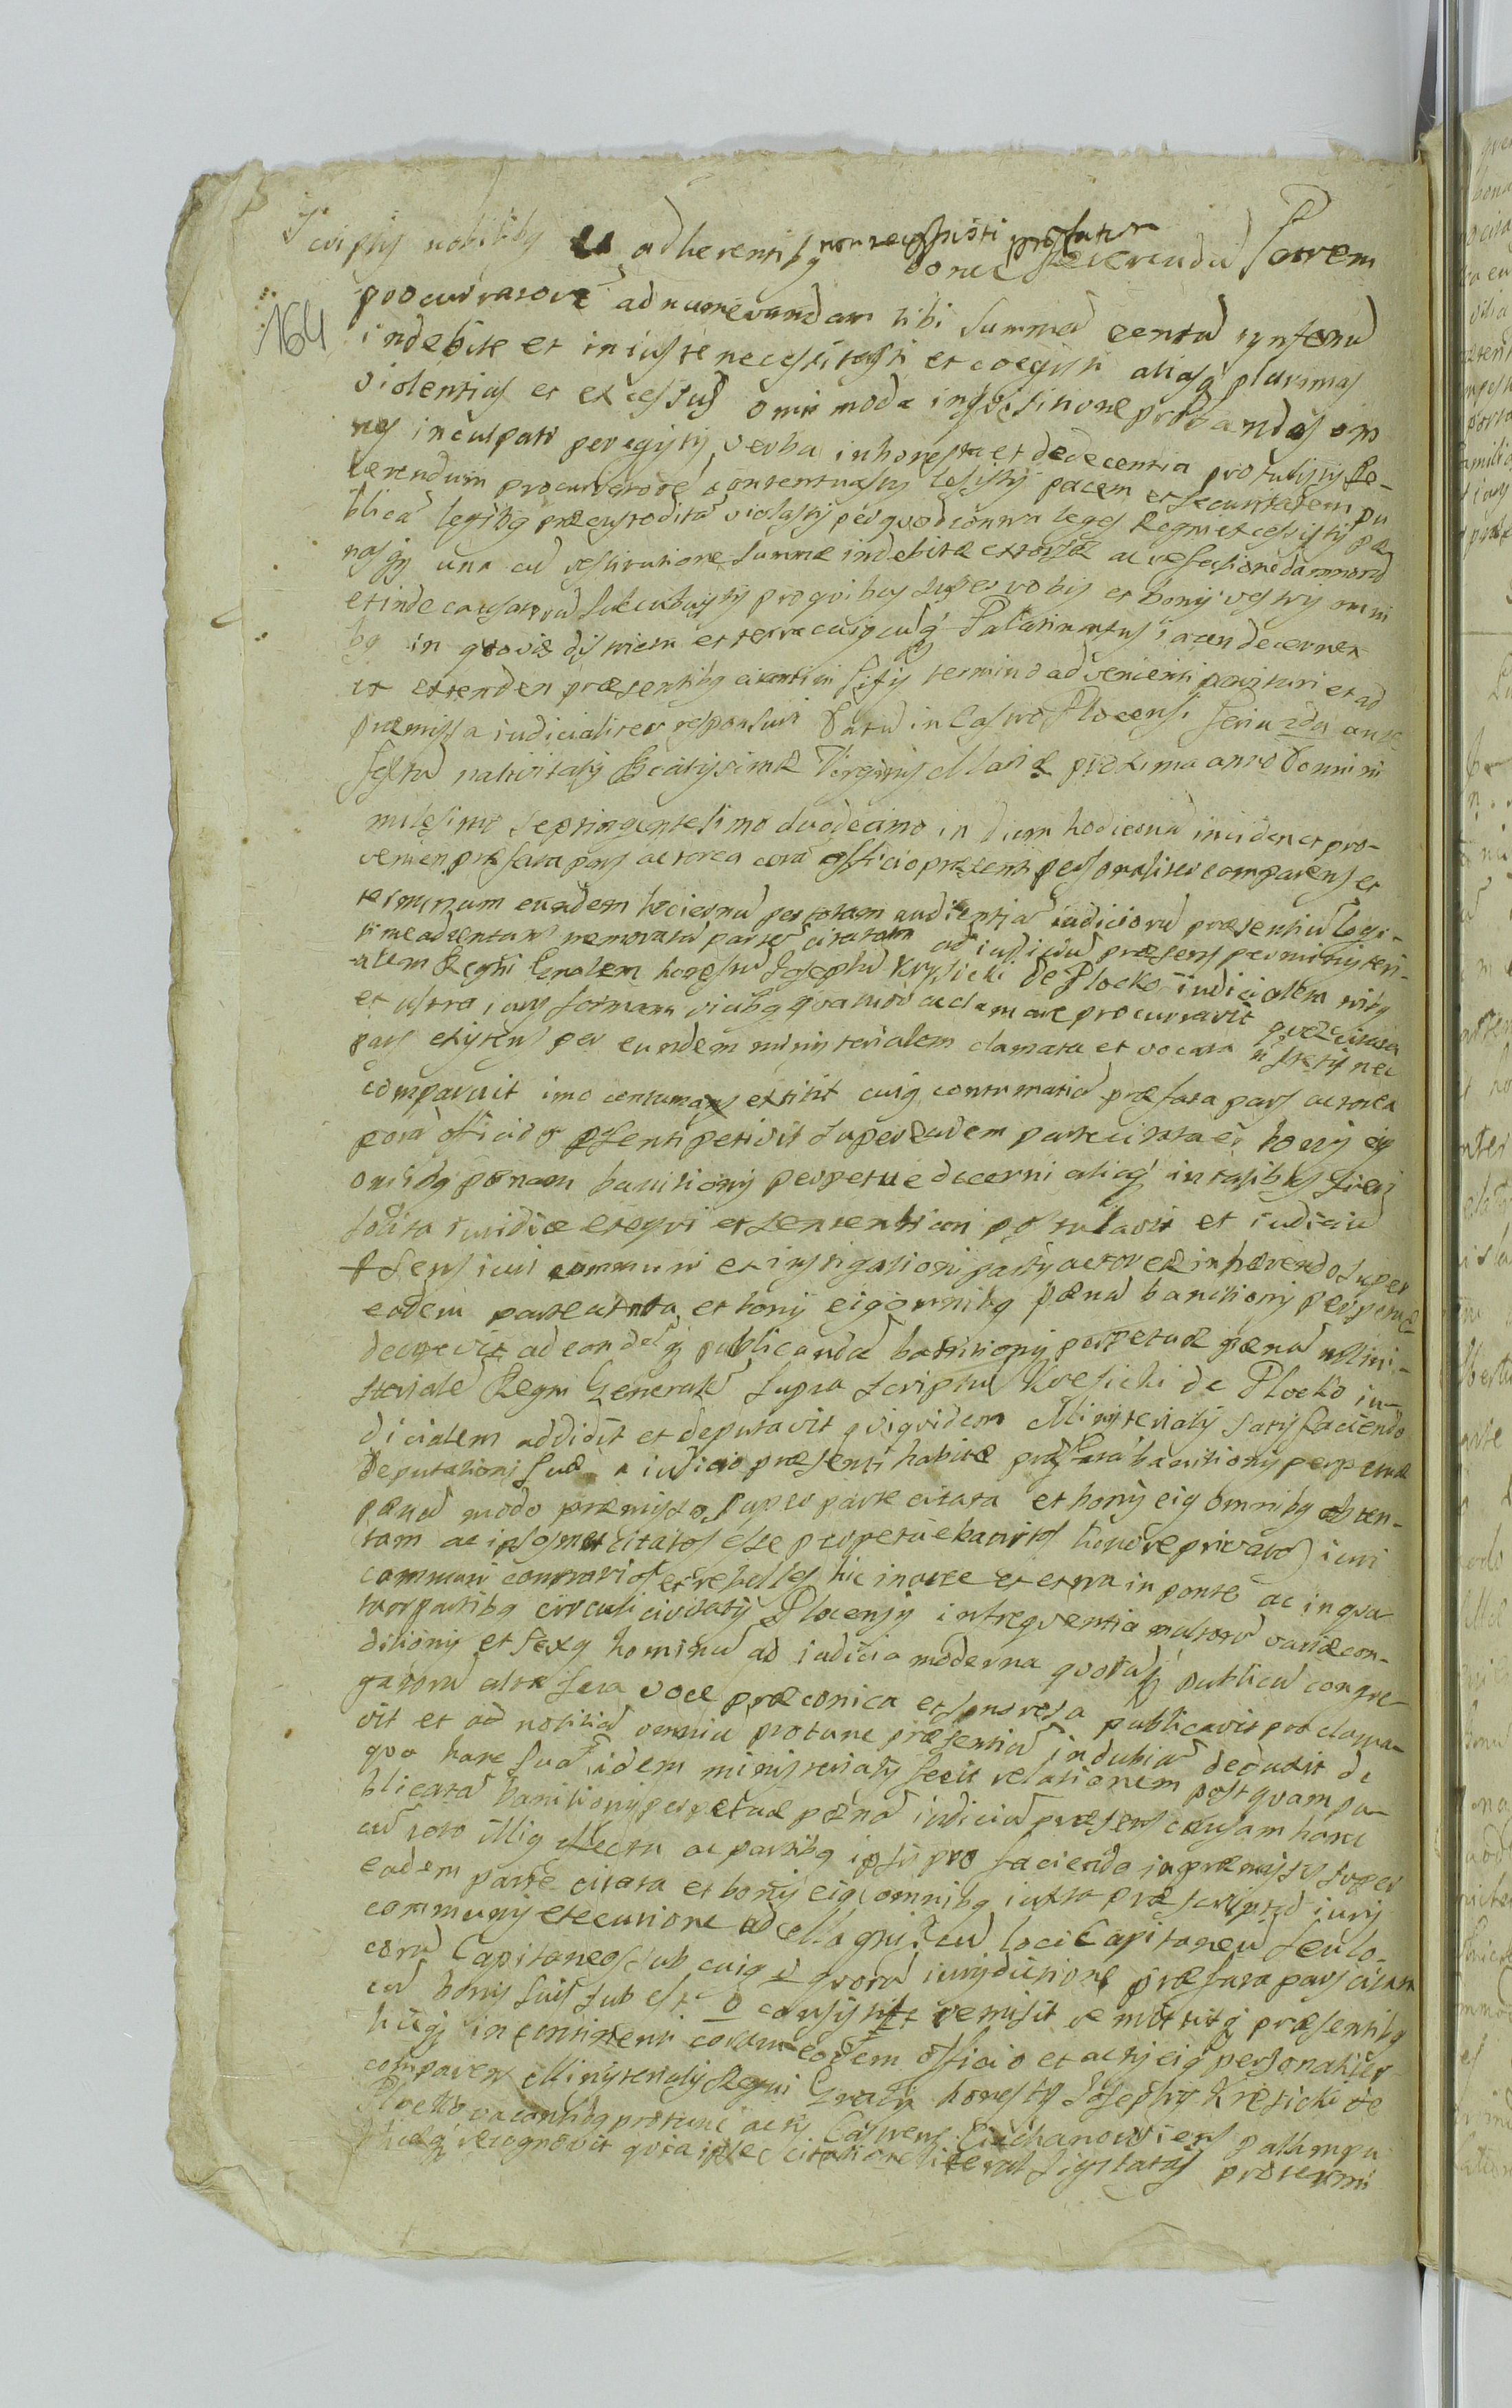 scriptis nobilibg adherentibg non recessisti praefatum
donec Reverendũ Patrem
164
procuratorẽ ad numerandam tibi summã centũ tynfonũ
indebite et iniuste necessitasti et coegisti aliasq' plurimas
violentias et excessus omnimoda inquisitione probandas om
nes inculpati peregistis verba inhonesta et dedecentia protulistis Re-
verendum procuratorẽ contentuastis lesistis pacem et securitatem pu
blicã legibg praecustoditã violastis per quod contra leges Regni excesistis pae
nas qz una cũ restitutione summae indebitae extorsae ac refusione damnorũ
et inde causatorũ succubuistis pro quibus super vobis et bonis vestris omni
bg in quovis districtu et terra cuiqcuq' Palatinatus iacen decernen
et extenden praesentibg citamini sitis termino advenienti parituri et ad
praemissa iudicialiter responsuri Datũ in Castro Plocensi feria 2da ante
festũ nativitatis Beatissimae Virginis Mariae proxima anno Domini
milesimo septingentesimo duodecimo in diem hodiernũ inciden et pro-
venien praefata pars actorea corã officio praesenti personaliter comparens et
terminum eundem hodiernũ per totam audientiã iudiciorũ praesentiũ legi-
time adtentans memoratã partẽ citatam ad iudiciũ praesens per ministeri-
alem Regni Gnralem honestũ Josephũ Krysicki de Plocko iudicialem ritibg
et iuxta iuris formam vicibg quatuor acclamare procuravit quae citata
pars existens per eundem ministerialem clamata et vocata ñ stetit nec
comparuit imo contumax extitit cuig contumatiã praefata pars actorea
corã officio pñsenti petivit super eadem parte citata et bonis eig
omibg poenam banitionis perpetue decerni aliaq' in talibus fieri
solita iuridice exequi et sententiari postulavit et iudiciũ
pñsens iuri communi et instigationi partis actoreae inhaerendo super
eadem parte citata et bonis eig omnibg paenã banitionis perpetuae
decrevit ad eandẽqz publicandã banitionis perpetuae paenã mini-
sterialẽ Regni Generalẽ supra scriptũ Kresicki de Plocko iu-
dicialem addidit et deputavit quiquidem Ministerialis satisfaciendo
deputationi suae a iudicio praesenti habitae praefatã banitionis perpetuae
paenã modo praemisso super parte citata et bonis eig omnibg obten-
tam ac ipsosmet citatos esse perpetue banitos honore privatos iuri
communi contrarios et rebelles hic in arce et extra in ponte ac in qua
tuor partibg circuli civitatis Plocensis in frequentia multorũ variae con-
ditionis et sexg hominũ ad iudicia moderna quorũqz publicũ congre-
gatorũ alta sua voce praeconica et sonorosa publicavit proclama-
vit et ad notitiã omniũ protunc praesentiũ indubiã deduxit de
quo hanc suã idem ministerialis fecit relationem postquam pu-
blicatã banitionis perpetuae poenã iudiciũ praesens causam hanc
cũ toto illig effectu ac partibg ipsis pro facienda in praemissis super
eadem parte citata et bonis eig omnibg iuxta praescriptũ iuris
communis executione ad Magnificũ loci Capitaneũ seu lo-
corũ Capitaneos sub cuig et quorũ iurisdictione praefata pars citata
cũ bonis suis subest o consistit remisit remittitq' praesentibg
hicqz in continenti coram eodem officio et actis eig personaliter
comparens Ministerialis Regni Gnralis honestg Josephg Kresicki de
Plocko vacantibg protunc actis Castrens. Ciechanoviens palam pu
bliceq' recognovit quia ipse citationẽ literas sigilatas pro termi